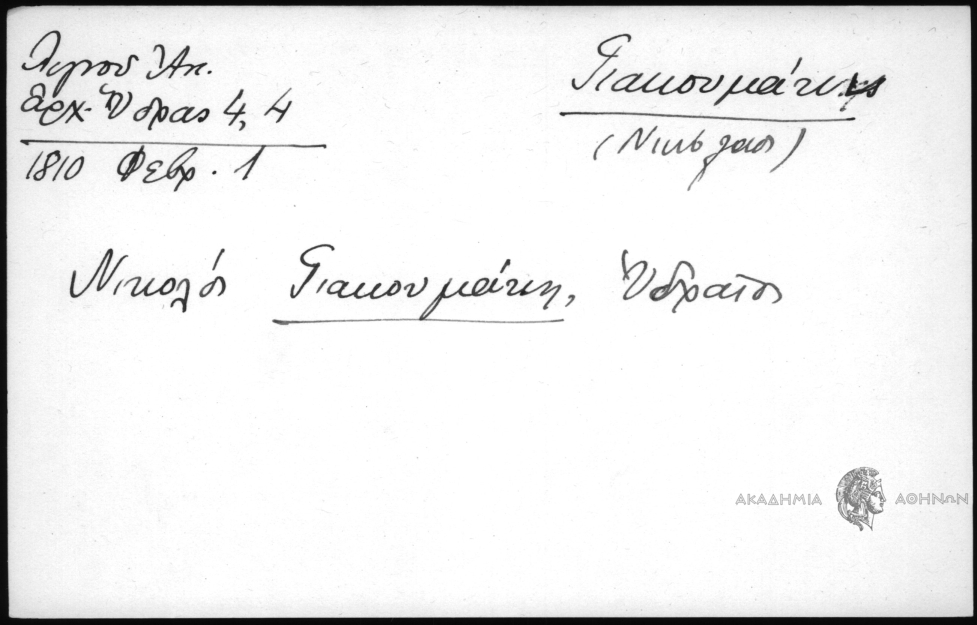 Λιγνού Ἀν.
Ἀρχ. Ὕδρας 4, 4
1810 Φεβρ. 1
Γιακουμάκης
(Νικόλαος)
Νικολός Γιακουμάκη, Ὑδραῖος
ΑΚΑΔΗΜΙΑ ΑΘΗΝΩΝ